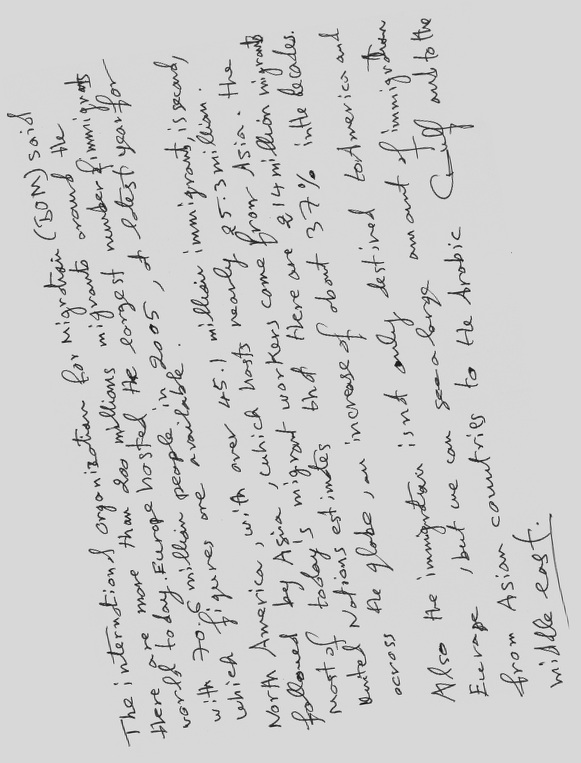 The international organization for Migration (IOM) said
there are more than 200 millions migrants around the
world today. Europe hosted the largest number of immigrants
with 70.6 million people in 2005, at latest year for
which figures are available.
North America, with over 45.1 million immigrants, is second,
followed by Asia, which hosts nearly 25.3 million. the
most of today's migrant workers come from Asia.
United Nations estimates that there are 214 million migrants
across the globe, an increase of about 37% in the decades.
Also the immigration isn't only destined to America and
Europe, but we can see a large amount of immigration
from Asian countries to the Arabic Gulf and to the
middle east.